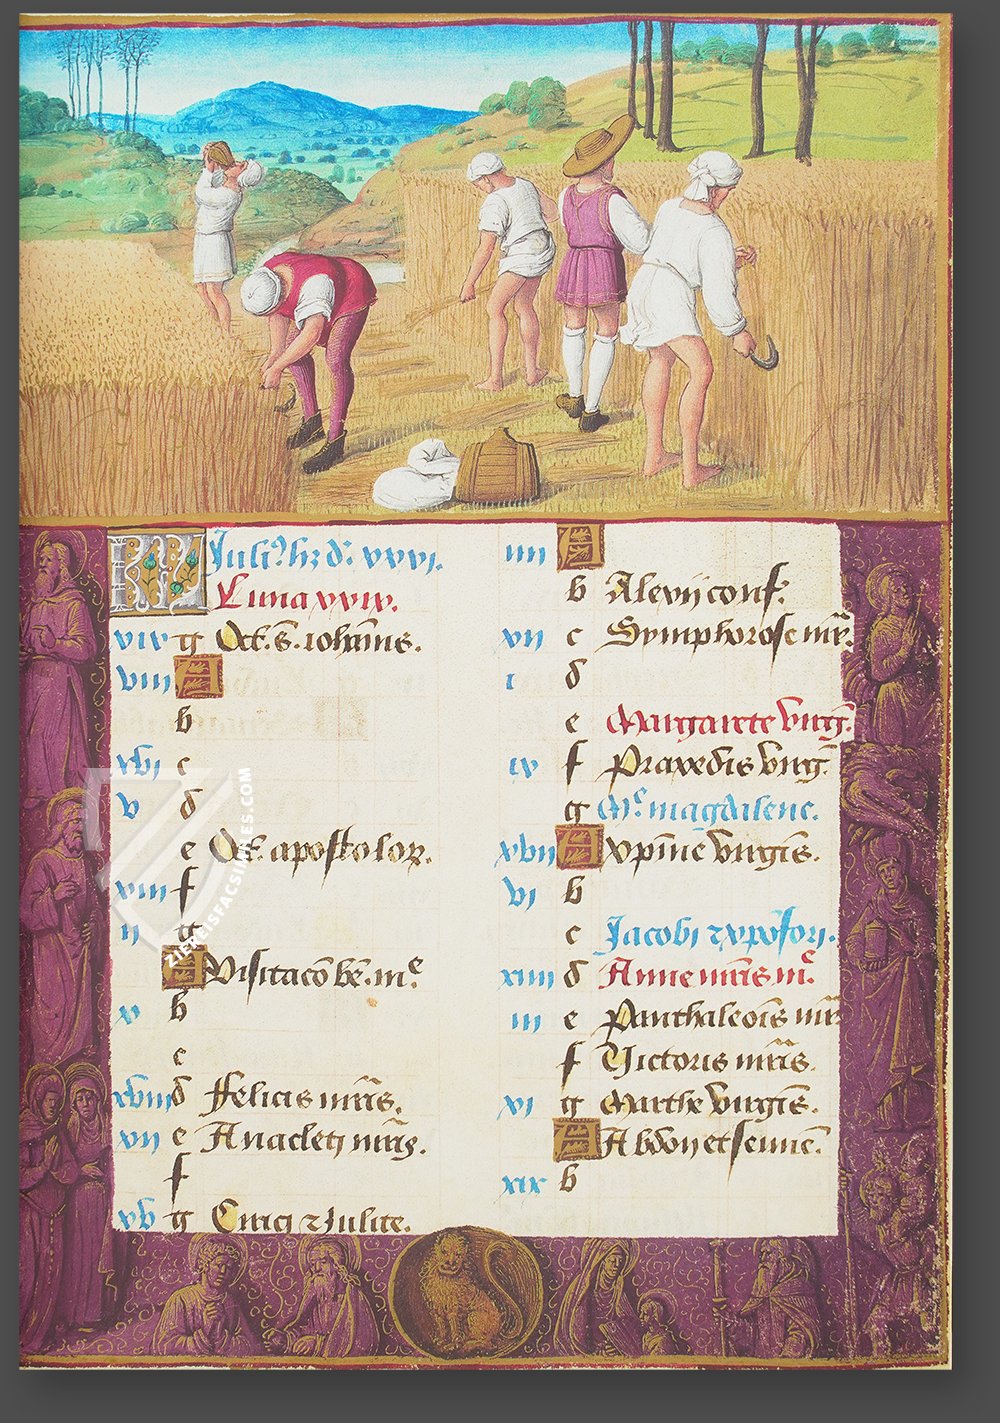 KL Iuliꝰ hꝫ d̄. xxxi.
Luna xxix.
xix g Oct. S. iohān̄is.
viii A
b
xvi c
v d
e Oct. apostoloꝝ.
xiii f
ii g
A Visitacō be. me
x b
c
xviii d Felicis mr̄is.
vii e Anacleti mr̄is.
f
xv g Cirici ⁊ Iulite.
iiii A
b Alexij conf.
xii c Symphorose mr̄.
i d
e Margarete virḡ.
ix f Praxedis virḡ.
g Me magdalene.
xvii A Xpīne virgīs.
vi b
c Jacobi ⁊ xpofori.
xiiii d Anne mr̄is me.
iii e Panthaleōis mr̄
f Victoris mr̄is.
xi g Marthe virgīs.
A Abdon et sennē.
xix b
ZIEREISFACSIMILES.COM